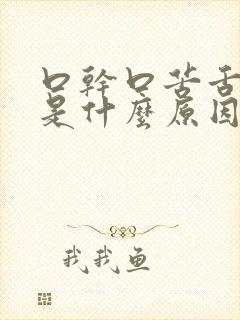 口幹口苦舌
是什麼原因
我我魚